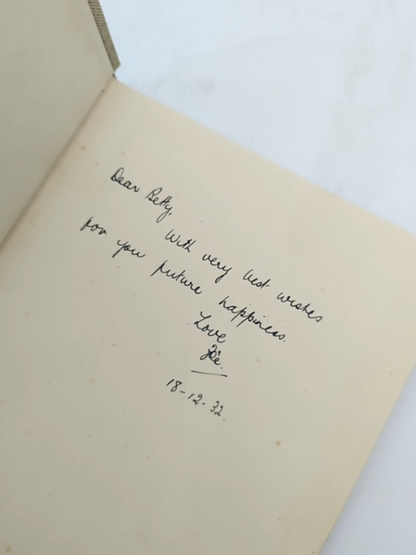 Dear Betty,
With very best wishes
for you future happiness.
Love
18-12-32.